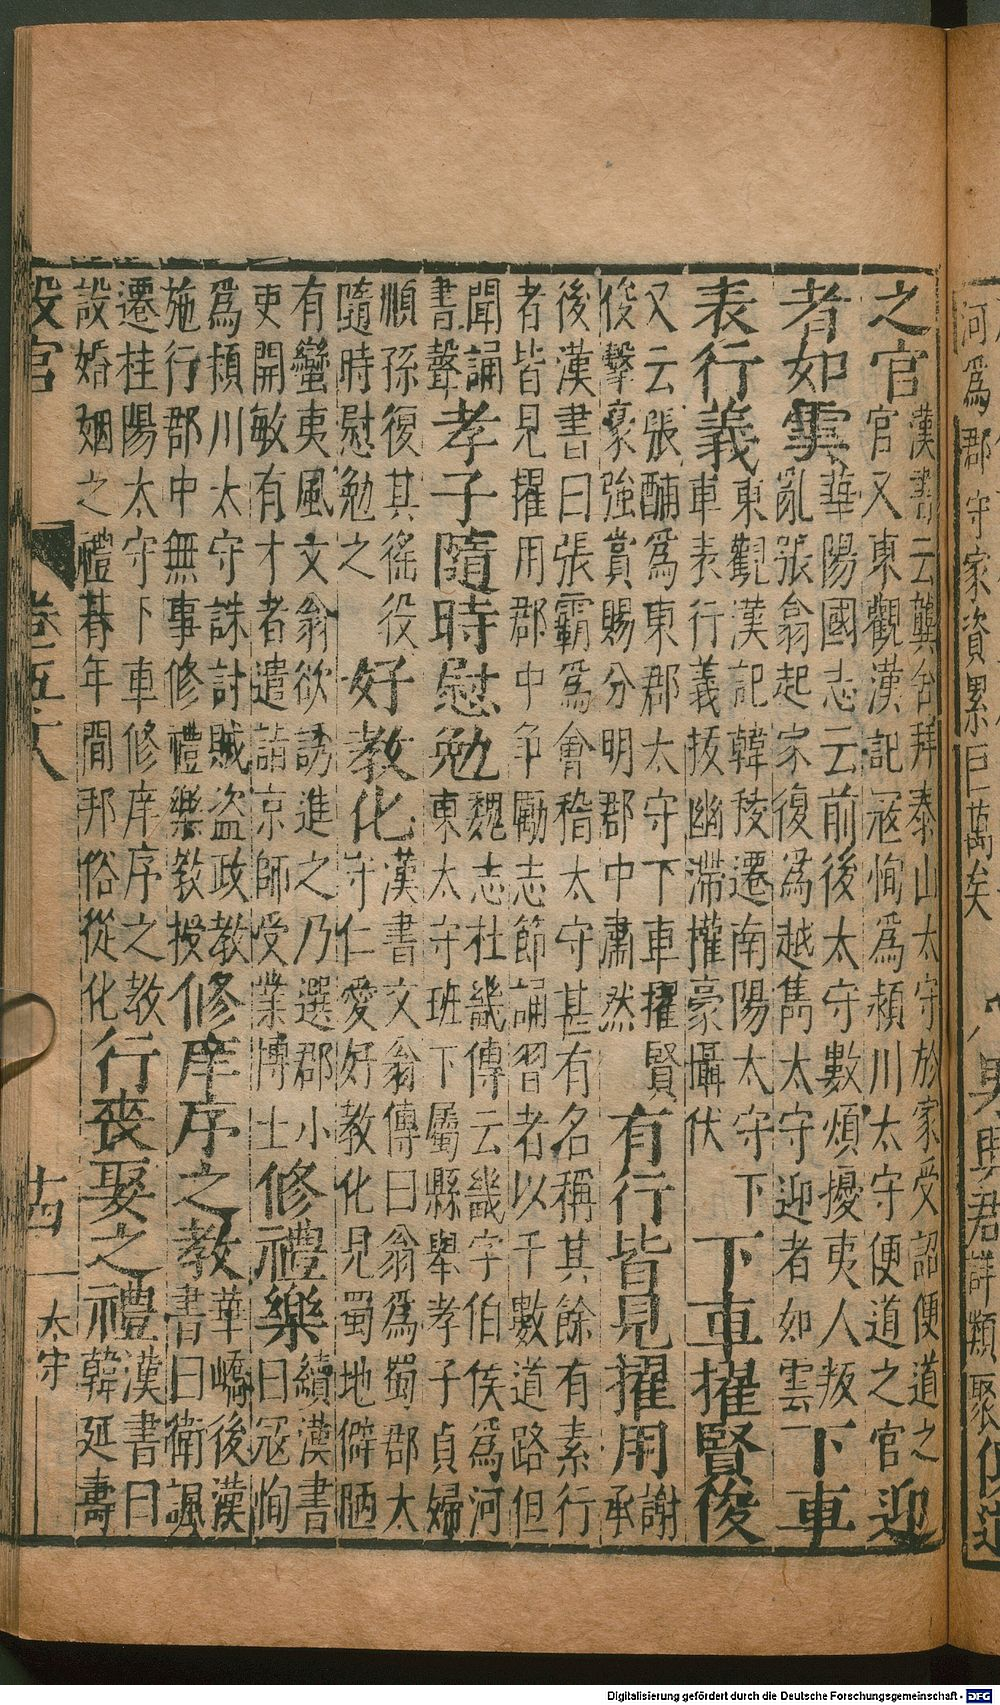 河爲郡守家資累巨萬矣
之官
漢書云龔舍拜泰山太守於家受詔便道之
官又東觀漢記冦恂爲潁川太守便道之官
迎
者如雲
華陽國志云前後太守數煩擾夷人叛
亂張翕起家復爲越雋太守迎者如雲
下車
表行義
東觀漢記韓稜遷南陽太守下
車表行義拔幽滯權豪懾伏
下車擢賢俊
又云張酺爲東郡太守下車擢賢
俊擊豪強賞賜分明郡中肅然
有行皆見擢用
謝
承
後漢書曰張霸爲會稽太守甚有名稱其餘有素行
者皆見擢用郡中爭勵志節誦習者以千數道路但
聞誦
書聲
孝子隨時慰勉
魏志杜畿傳云畿字伯侯爲河
東太守班下屬縣舉孝子貞婦
順孫復其徭役
隨時慰勉之
好教化
漢書文翁傳曰翁爲蜀郡太
守仁愛好教化見蜀地僻陋
有蠻夷風文翁欲誘進之乃選郡小
吏開敏有才者遣詣京師受業博士
修禮樂
續漢書
曰冦恂
爲潁川太守誅討賊盜政教
施行郡中無事修禮樂教授
修庠序之教
華嶠後漢
書曰衛颯
遷桂陽太守下車修庠序之教
設婚姻之禮朞年間邦俗從化
行喪娶之禮
漢書曰
韓延壽
設官
十四
太守
Digitalisierung gefördert durch die Deutsche Forschungsgemeinschaft - DFG